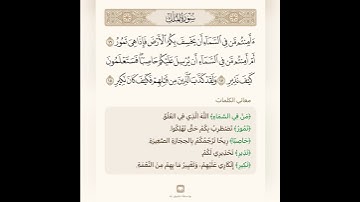 سُورَةُ المُلْكِ
ءَأَمِنتُم مَّن فِي السَّمَاءِ أَن يَخْسِفَ بِكُمُ الْأَرْضَ فَإِذَا هِيَ تَمُورُ ١٦
أَمْ أَمِنتُم مَّن فِي السَّمَاءِ أَن يُرْسِلَ عَلَيْكُمْ حَاصِبًا فَسَتَعْلَمُونَ
كَيْفَ نَذِيرِ ١٧ وَلَقَدْ كَذَّبَ الَّذِينَ مِن قَبْلِهِمْ فَكَيْفَ كَانَ نَكِيرِ ١٨
معاني الكلمات
﴿مَّن فِي السَّمَاءِ﴾ اللَّهَ الَّذِي فِي العُلُوِّ.
﴿تَمُورُ﴾ تَضْطَرِبُ بِكُمْ حَتَّى تَهْلِكُوا.
﴿حَاصِبًا﴾ رِيحًا تَرْجُمُكُمْ بِالحِجَارَةِ الصَّغِيرَةِ.
﴿نَذِيرِ﴾ تَحْذِيرِي لَكُمْ.
﴿نَكِيرِ﴾ إِنْكَارِي عَلَيْهِمْ، وَتَغْيِيرُ مَا بِهِمْ مِنَ النِّعْمَةِ.